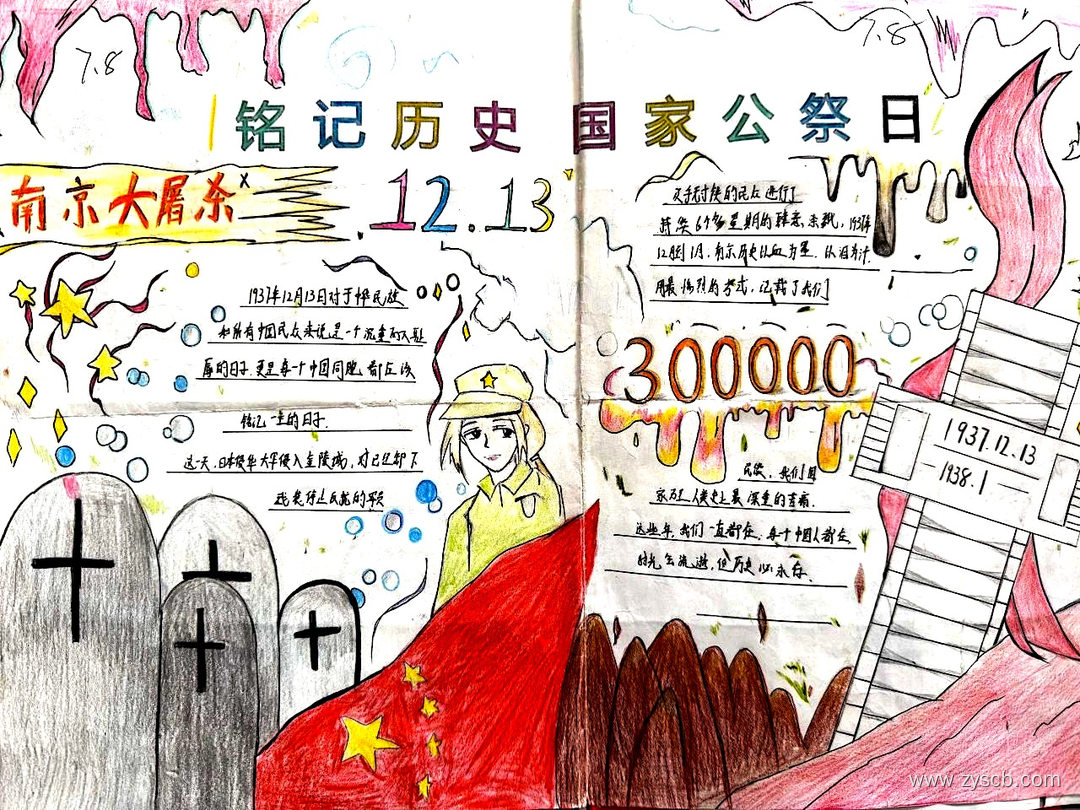 7.8
7.8
铭记历史 国家公祭日
南京大屠杀
12.13
1937年12月13日对于中华民族
和所有中国民众来说是一个沉重的
的日子 更是每一个中国同胞 都应该
铭记一生的日子.
这一天,日本侵华大军侵入金陵城,对已经卸下
手无寸铁的民众进行了
长达6个多星期的
12月到1月,南京历史以血为墨,以泪为
用最惨烈的方式,记载了我们
300000
民族,我们国
家历史上最深重的苦痛.
这些年,我们一直都在,每一个中国人都在
时光会流逝,但历史必永存.
1937.12.13
—1938.1—
www.zyscb.com